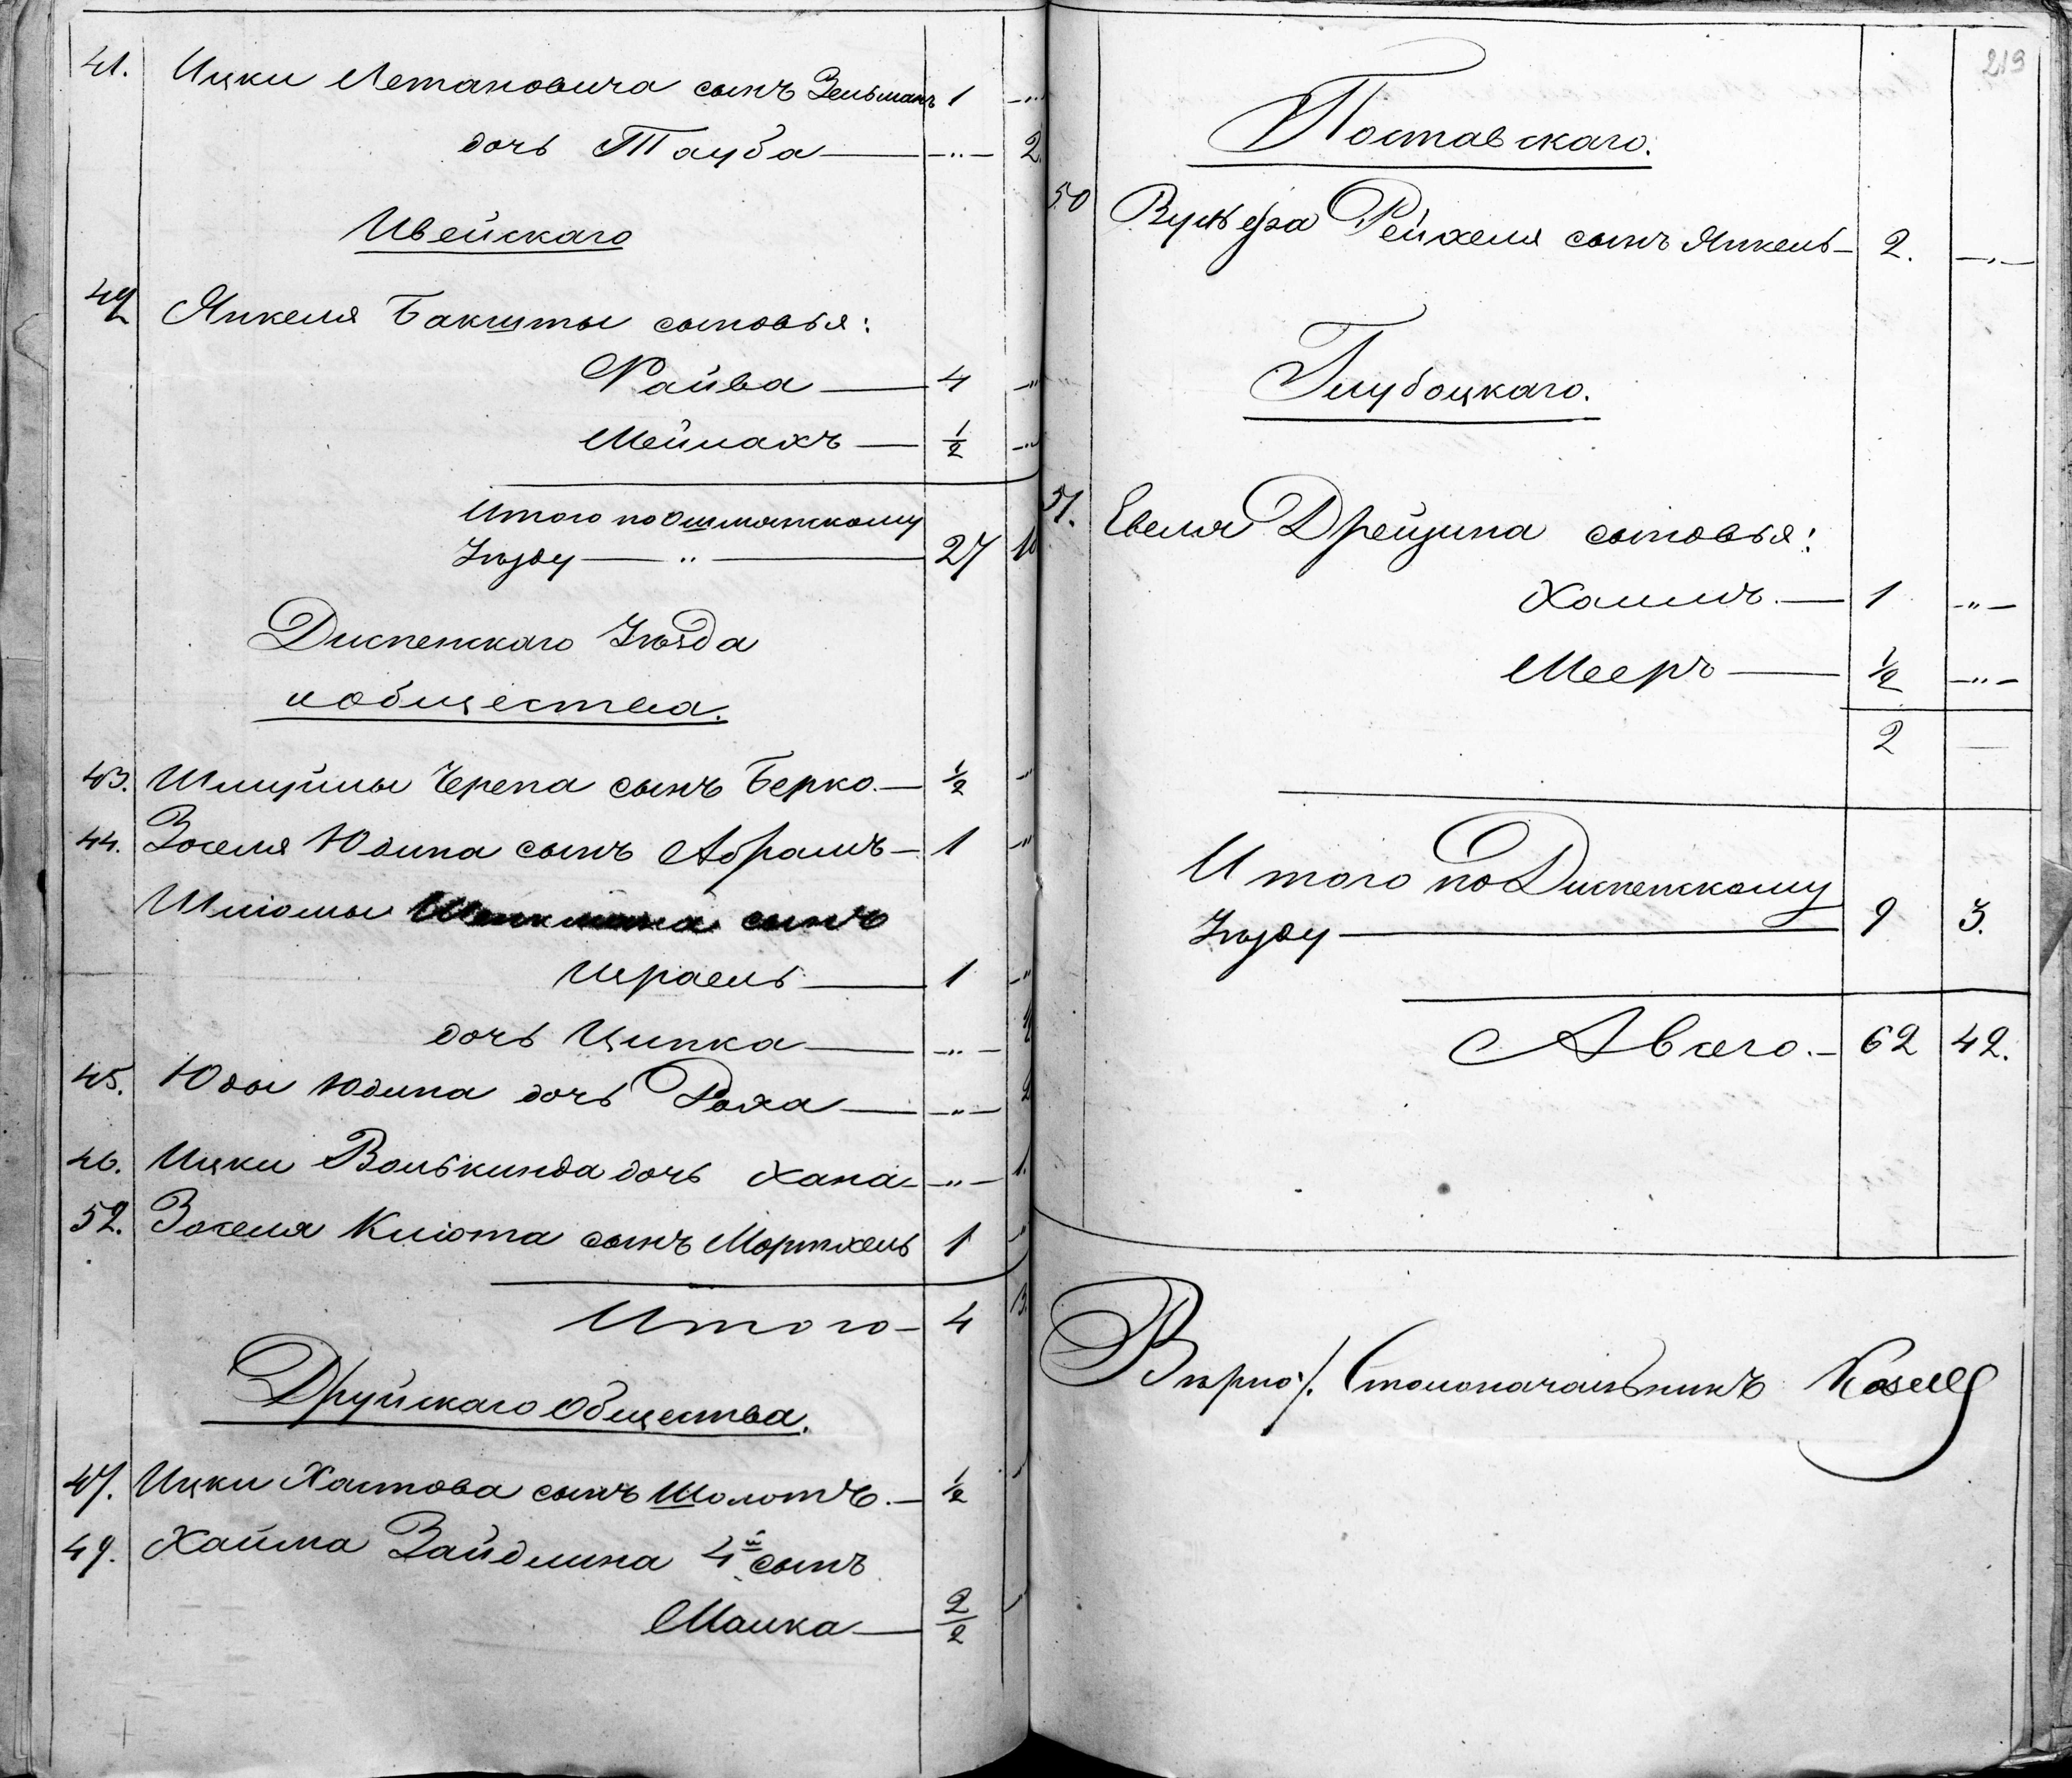 41. Ицки Летановича сынъ Зельманъ 1 —"—
дочь Тауба — —"— 2.
Ивейскаго
42 Янкеля Бакшты сыновья:
Файва — 4 —"
Меймахъ — ½ —"
Итого по Ошмянскому
Уѣзду — " — 27 10
Дисненскаго Уѣзда
и общества.
43. Шмуйлы Черепа сынъ Берко. — ½ "
44. Зоселя Юдина сынъ Абрамъ — 1 "
Шліомы сынъ
Израель — 1 —"
дочь Ципка — —"—
45. Юды Юдина дочь Роха — —"— 2
46. Ицки Волькинда дочь Хана — —"— 1.
52. Зоселя Кліота сынъ Мортхель 1 "
Итого — 4 3.
Друйскаго Общества.
47. Ицки Хатова сынъ Шоломъ. — ½
49. Хайма Зайдлина 4й сынъ
Малка — 2/2
219
Поставскаго.
50 Вульфа Рейхеля сынъ Янкель — 2. —"—
Глубоцкаго.
51. Евеля Дрейзина сыновья:
Хаимъ. — 1 —"—
Мееръ — ½ —"—
2 —
Итого по Дисненскому
Уѣзду — 9 3.
А всего. — 62 42.
Вѣрно: Столоначальникъ Козелл